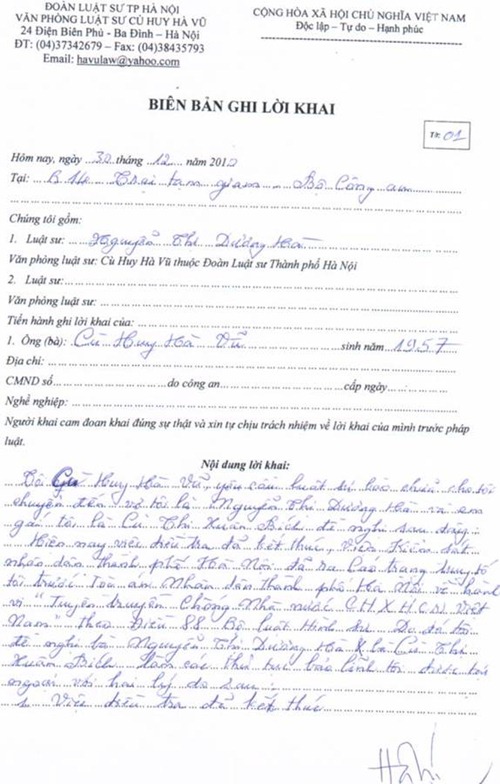 ĐOÀN LUẬT SƯ TP HÀ NỘI
VĂN PHÒNG LUẬT SƯ CÙ HUY HÀ VŨ
24 Điện Biên Phủ - Ba Đình – Hà Nội
ĐT: (04)37342679 – Fax: (04)38435793
Email: havulaw@yahoo.com
CỘNG HÒA XÃ HỘI CHỦ NGHĨA VIỆT NAM
Độc lập – Tự do – Hạnh phúc
BIÊN BẢN GHI LỜI KHAI
Tờ: 01
Hôm nay, ngày 30 tháng 12 năm 2010
Tại: B14 Trại tạm giam, Bộ Công an
Chúng tôi gồm:
1. Luật sư: Nguyễn Thị Dương Hà
Văn phòng luật sư: Cù Huy Hà Vũ thuộc Đoàn Luật sư Thành phố Hà Nội
2. Luật sư:
Văn phòng luật sư:
Tiến hành ghi lời khai của:
1. Ông (bà): Cù Huy Hà Vũ sinh năm 1957
Địa chỉ:
CMND số do công an cấp ngày
Nghề nghiệp:
Người khai cam đoan khai đúng sự thật và xin tự chịu trách nhiệm về lời khai của mình trước pháp
luật.
Nội dung lời khai:
Tôi Cù Huy Hà Vũ, yêu cầu luật sư bào chữa cho tôi
chuyển đến vợ tôi là Nguyễn Thị Dương Hà và em
gái tôi là Cù Thị Xuân Bích đề nghị sau đây:
Hiện nay việc điều tra đã kết thúc, Viện Kiểm sát
nhân dân thành phố Hà Nội đã ra Cáo trạng truy tố
tôi trước Tòa án Nhân dân thành phố Hà Nội về hành
vi "Tuyên truyền Chống Nhà nước C.H.X.H.C.N Việt
Nam" theo Điều 88 Bộ luật Hình sự. Do đó tôi
đề nghị bà Nguyễn Thị Dương Hà & bà Cù Thị
Xuân Bích làm các thủ tục bảo lĩnh tôi được tại
ngoại với hai lý do sau:
1 Việc điều tra đã kết thúc